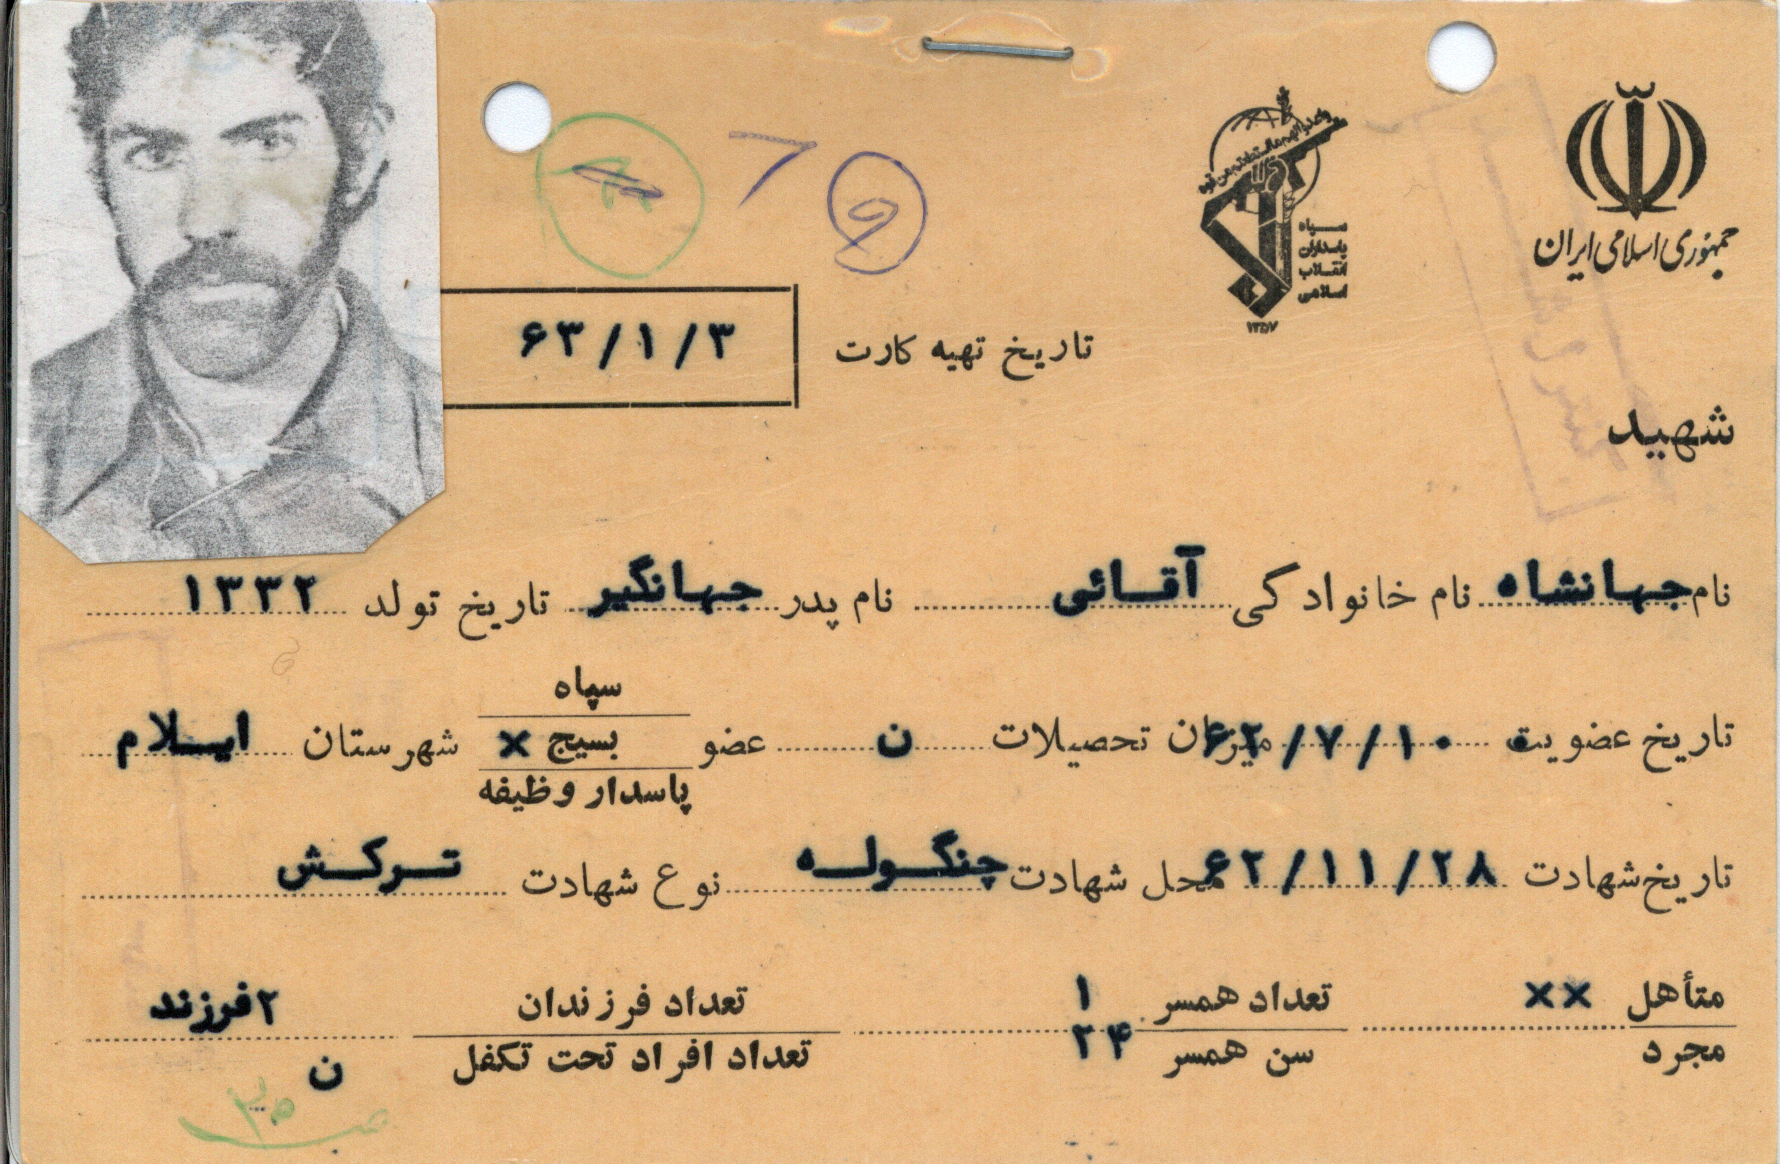 جمهوری اسلامی ایران
سپاه
پاسداران
انقلاب
اسلامی
۱۳۵۷
تاریخ تهیه کارت ۶۳/۱/۳
شهید
نام جهانشاه نام خانوادگی آقائی نام پدر جهانگیر تاریخ تولد ۱۳۳۲
تاریخ عضویت ۶۲/۷/۱۰ میزان تحصیلات ن عضو سپاه بسیج × پاسدار وظیفه شهرستان ایلام
تاریخ شهادت ۶۲/۱۱/۲۸ محل شهادت چنگوله نوع شهادت ترکش
متأهل ×× تعداد همسر ۱ تعداد فرزندان ۲ فرزند
مجرد سن همسر ۲۴ تعداد افراد تحت تکفل ن